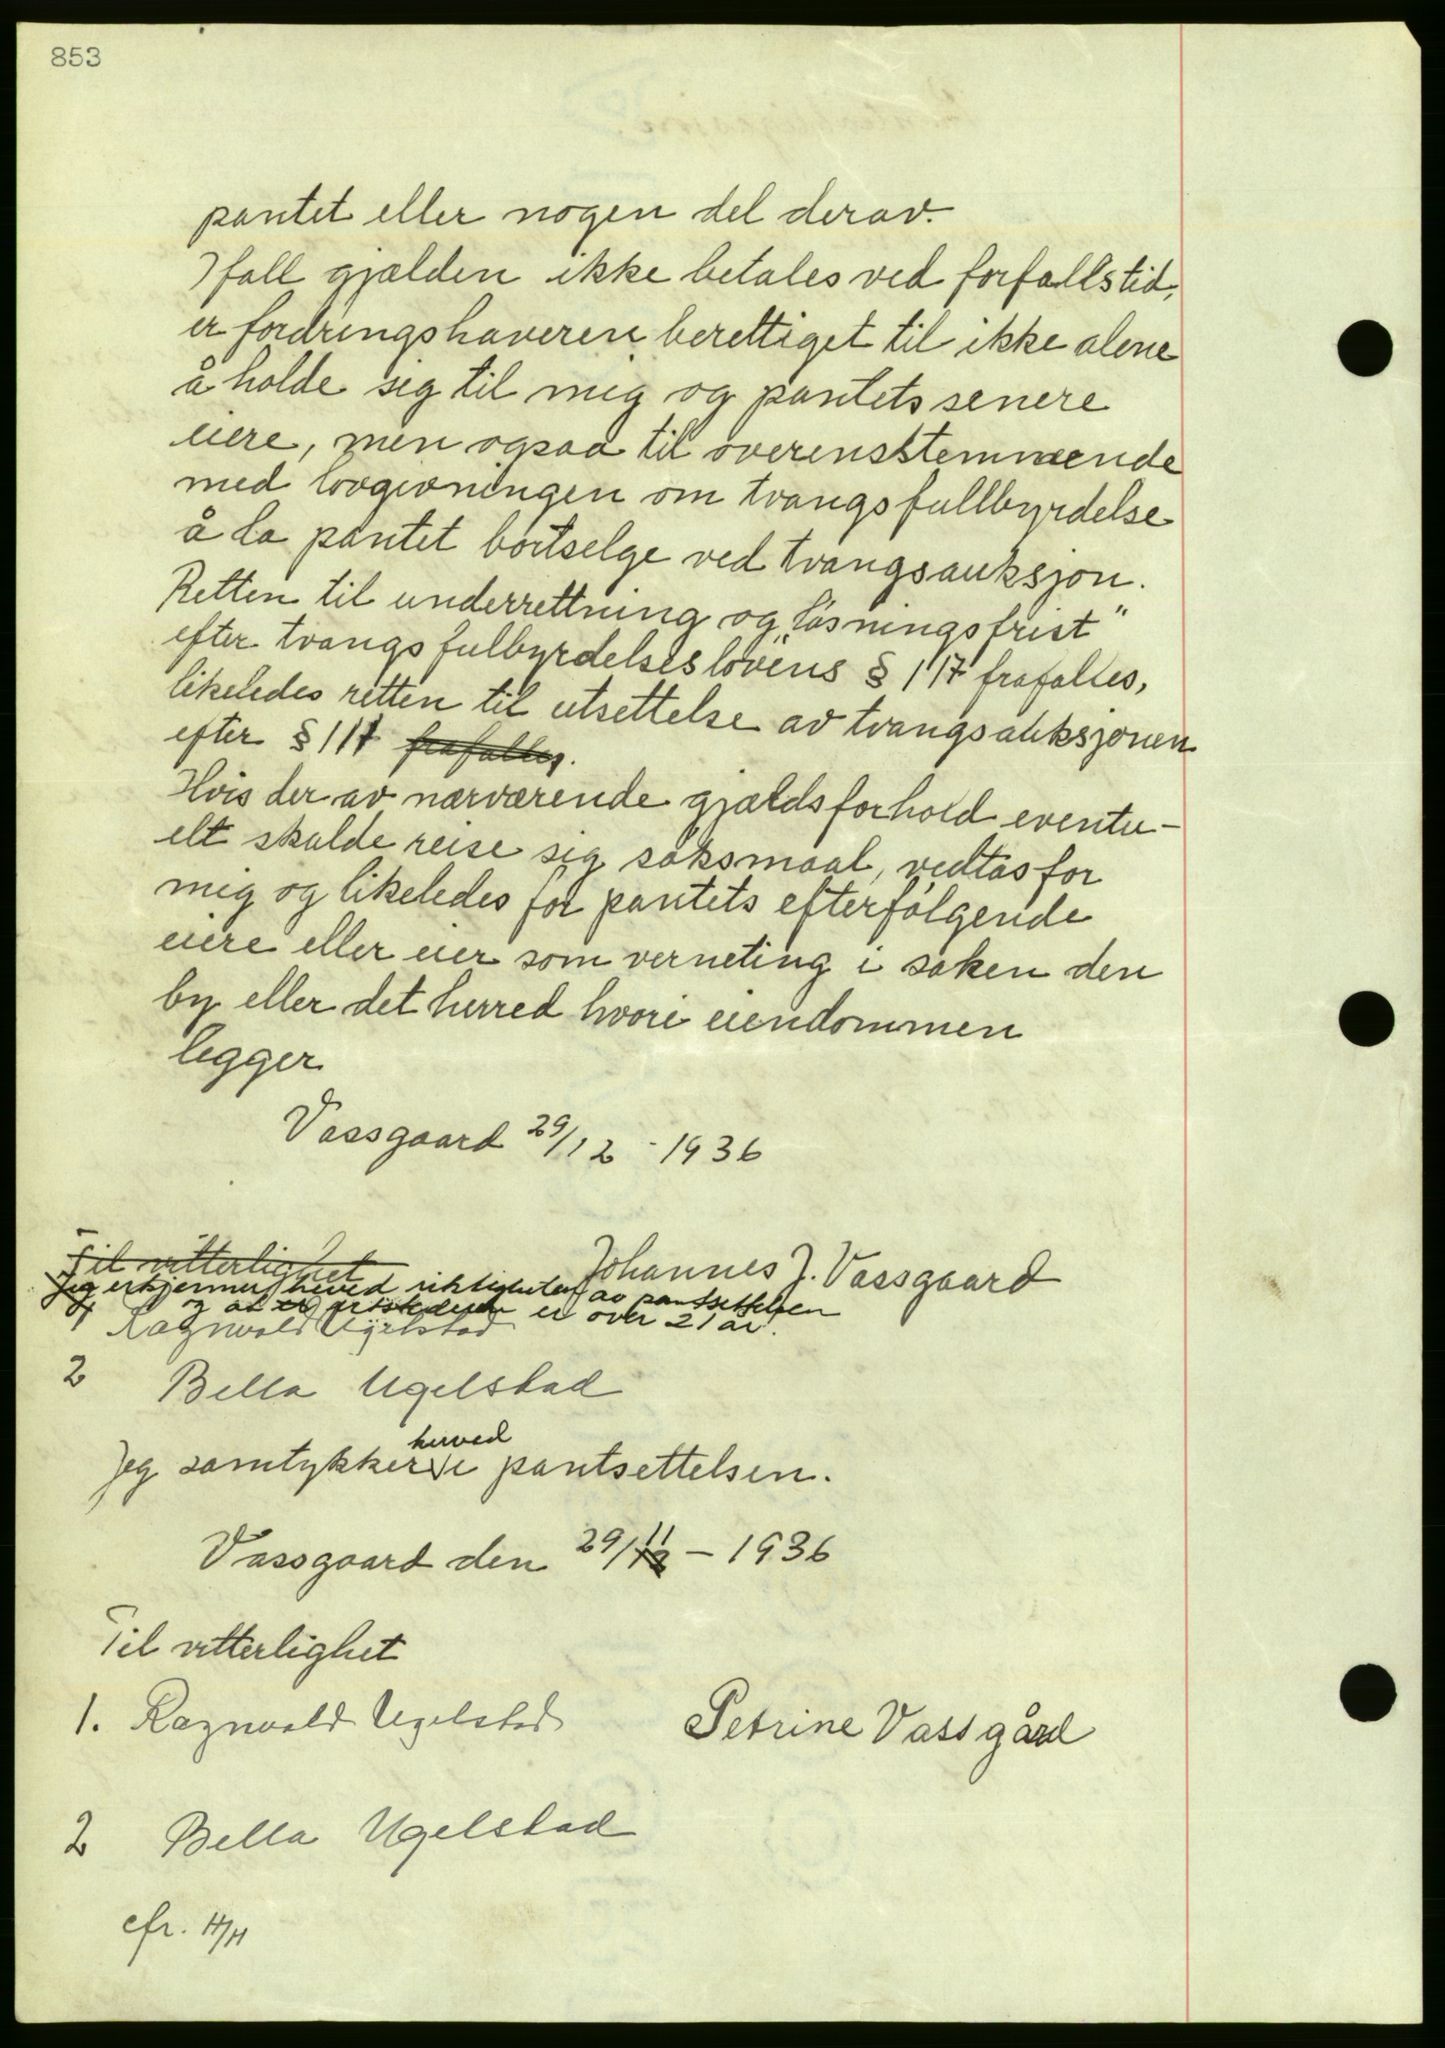 853
pantet eller nogen del derav.
Ifall gjælden ikke betales ved forfallstid,
er fordringshaveren berettiget til ikke alene
å holde sig til mig og pantets senere
eiere, men ogsaa til overensstemmende
med lovgivningen om tvangsfullbyrdelse
å la pantet bortselge ved tvangsauksjon.
Retten til underrettning og „løsningsfrist"
efter tvangsfulbyrdelseslovens § 117 frafalles,
likeledes retten til utsettelse av tvangsauksjonen
efter § 117 frafalles.
Hvis der av nærværende gjældsforhold eventu-
elt skulde reise sig søksmaal, vedtas for
mig og likeledes for pantets efterfølgende
eiere eller eier som verneting i saken den
by eller det herred hvori eiendommen
legger
Vassgaard 29/12 - 1936
Til vitterlighet
Johannes J. Vassgaard
Jeg erkjenner herved riktigheten av pantsettelsen
og at er over 21 år.
1 Ragnvald Ugelstad
2 Bella Ugelstad
Jeg samtykker herved i pantsettelsen.
Vassgaard den 29/11 - 1936
Til vitterlighet
1. Ragnvald Ugelstad
Petrine Vassgård
2 Bella Ugelstad
cfr. H/H